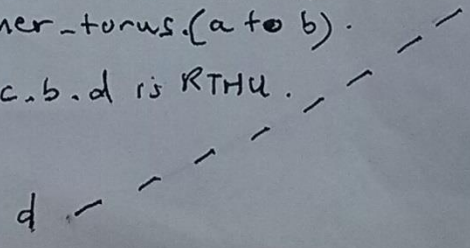 ner-torus.(a to b).
c.b.d is RTHU.
d